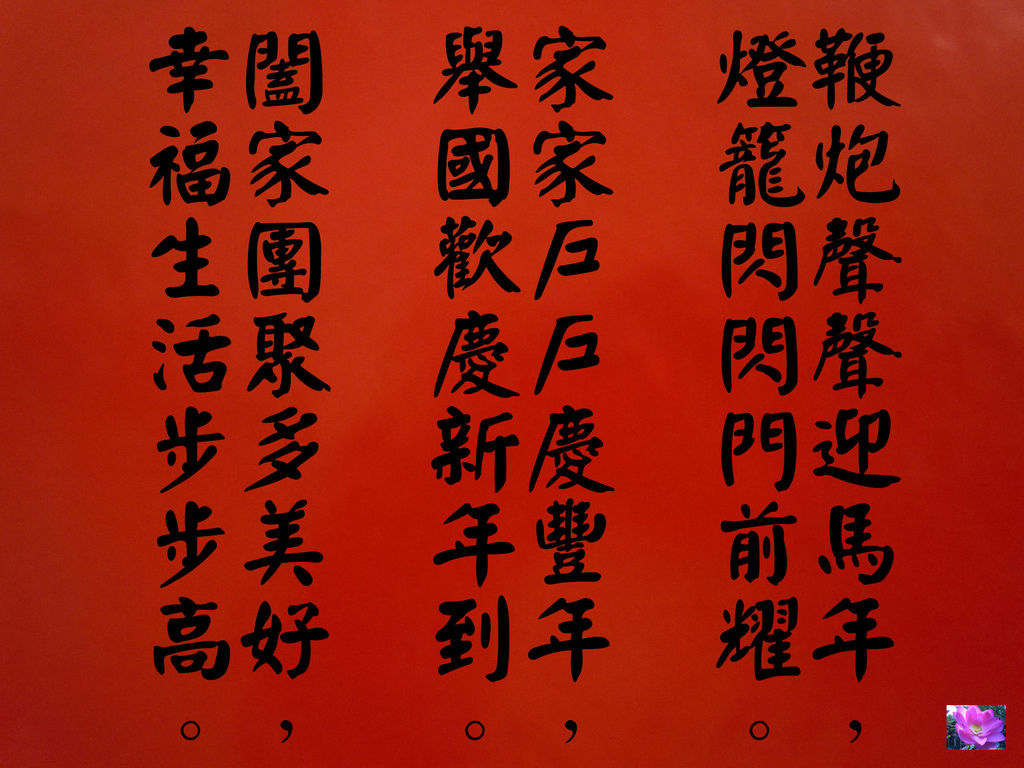 鞭炮聲聲迎馬年，
燈籠閃閃門前耀。
家家戶戶慶豐年，
舉國歡慶新年到。
闔家團聚多美好，
幸福生活步步高。